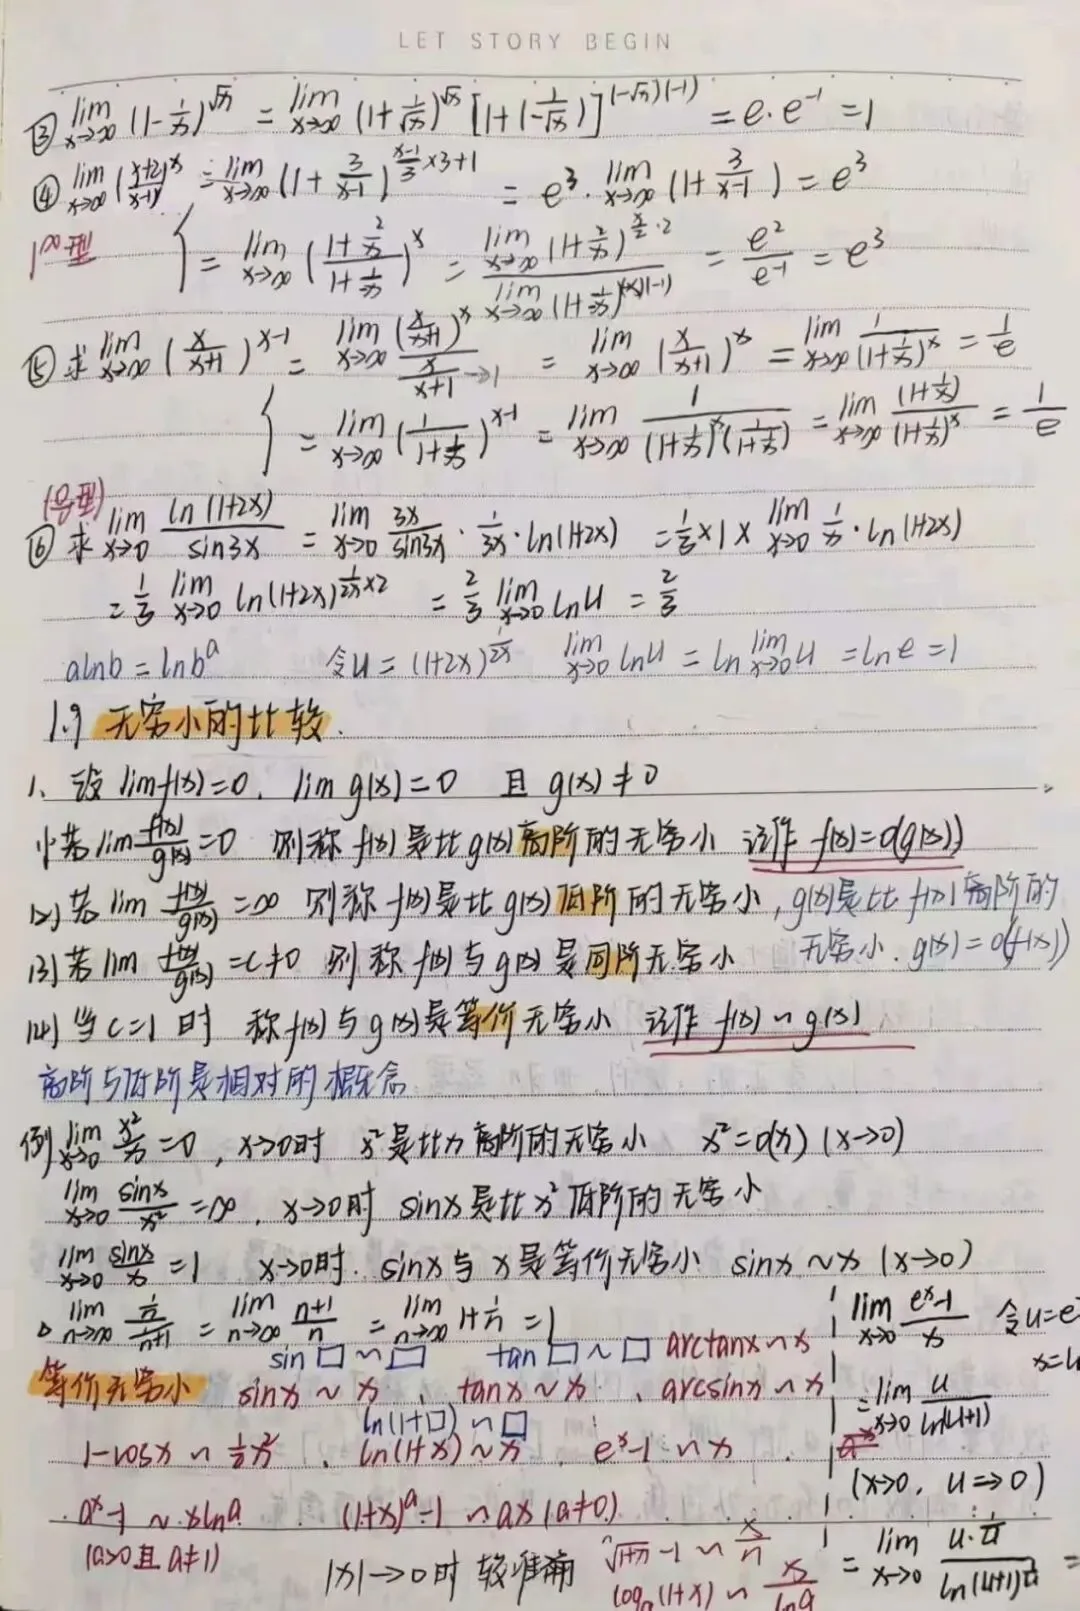 LET STORY BEGIN
③ lim x→∞ (1-1/x)^√x = lim x→∞ (1+1/√x)^√x [1+(-1/√x)]^(-√x)(-1) = e·e^-1 = 1
④ lim x→∞ (x+2/x-1)^x = lim x→∞ (1+3/x-1)^(x-1/3 ×3+1) = e³·lim x→∞ (1+3/x-1) = e³
1^∞型 { = lim x→∞ (1+2/x / 1+1/-x)^x = lim x→∞ (1+2/x)^(x/2·2) / lim x→∞ (1+1/-x)^(-x)(-1) = e²/e^-1 = e³
⑤ 求 lim x→∞ (x/x+1)^x-1 = lim x→∞ (x/x+1)^x / x/x+1 →1 = lim x→∞ (x/x+1)^x = lim x→∞ 1/(1+1/x)^x = 1/e
{ = lim x→∞ (1/1+1/x)^x-1 = lim x→∞ 1/(1+1/x)^x(1/1+1/x) = lim x→∞ (1+1/x)/(1+1/x)^x = 1/e
(0/0型)
⑥ 求 lim x→0 ln(1+2x)/sin3x = lim x→0 3x/sin3x · 1/3x · ln(1+2x) = 1/3×1× lim x→0 1/x · ln(1+2x)
= 1/3 lim x→0 ln(1+2x)^(1/2x ×2) = 2/3 lim x→0 lnu = 2/3
alnb = lnb^a 令u = (1+2x)^1/2x lim x→0 lnu = ln lim x→0 u = lne = 1
1.9 无穷小的比较.
1、设 limf(x)=0. lim g(x)=0 且 g(x)≠0
(1)若lim f(x)/g(x)=0 则称 f(x)是比g(x)高阶的无穷小 记作 f(x)=o(g(x))
(2)若 lim f(x)/g(x)=∞ 则称 f(x)是比 g(x)低阶的无穷小, g(x)是比 f(x)高阶的
无穷小. g(x)=o(f(x))
(3)若 lim f(x)/g(x)=c≠0 则称 f(x)与g(x)是同阶无穷小
(4)当 c=1 时 称f(x)与g(x)是等价无穷小 记作 f(x)~g(x)
高阶与低阶是相对的概念
例 lim x→0 x²/x=0, x→0时 x²是比x高阶的无穷小 x²=o(x) (x→0)
lim x→0 sinx/x²=∞. x→0时 sinx是比x²低阶的无穷小
lim x→0 sinx/x=1 x→0时. sinx与x是等价无穷小 sinx~x (x→0)
lim n→∞ 1/n / 1/n+1 = lim n→∞ n+1/n = lim n→∞ 1+1/n = 1
sin□~□ tan□~□ arctanx~x
等价无穷小 sinx~x. tanx~x. arcsinx~x
ln(1+□)~□
1-cosx~1/2x². ln(1+x)~x. e^x-1~x
a^x-1~xlna (1+x)^a-1~ax (a≠0)
(a>0且a≠1) |x|→0时 较准确 ⁿ√1+x -1~x/n
log_a(1+x)~x/lna
lim x→0 e^x-1/x 令u=e
x=l
= lim x→0 u/ln(u+1)
(x→0, u→0)
= lim x→0 u·1/u / ln(u+1)^1/u =